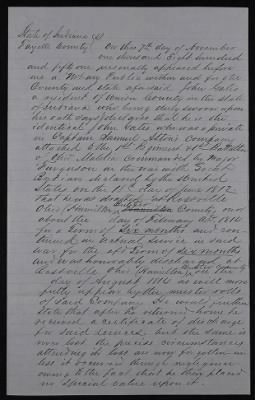 State of Indiana }
Fayette County } On this 7th day of November
one thousand Eight hundred
and fifty one personally appeared before
me a Notary Public within and for the
County and state aforesaid John Gates
a resident of Union County in the state
of Indiana who being duly sworn upon
his oath does declare that he is the
identical John Gates who was a private
in Captain Samuel Company
attached to the 1st Regiment Battalion
of Ohio Militia Commanded by Major
Ferguson in the war with Great
England declared by the United
States on the 18th day of June 1812
that he was at Rossville
Ohio County on or
about the day of February AD 1814
for a term of six months and con
tinued in actual service in said
war for the term of six months
and was honorably discharged at
Rossville Ohio on the
day of August 1814 as will more
fully appear by the muster rolls
of said Company. He would further
State that after he returned home he
received a certificate of discharge
for said service, but the same is
now lost the precise circumstances
attending its loss are now forgotten un
less it occurred through negligence
owing to the fact that he then placed
no special value upon it.